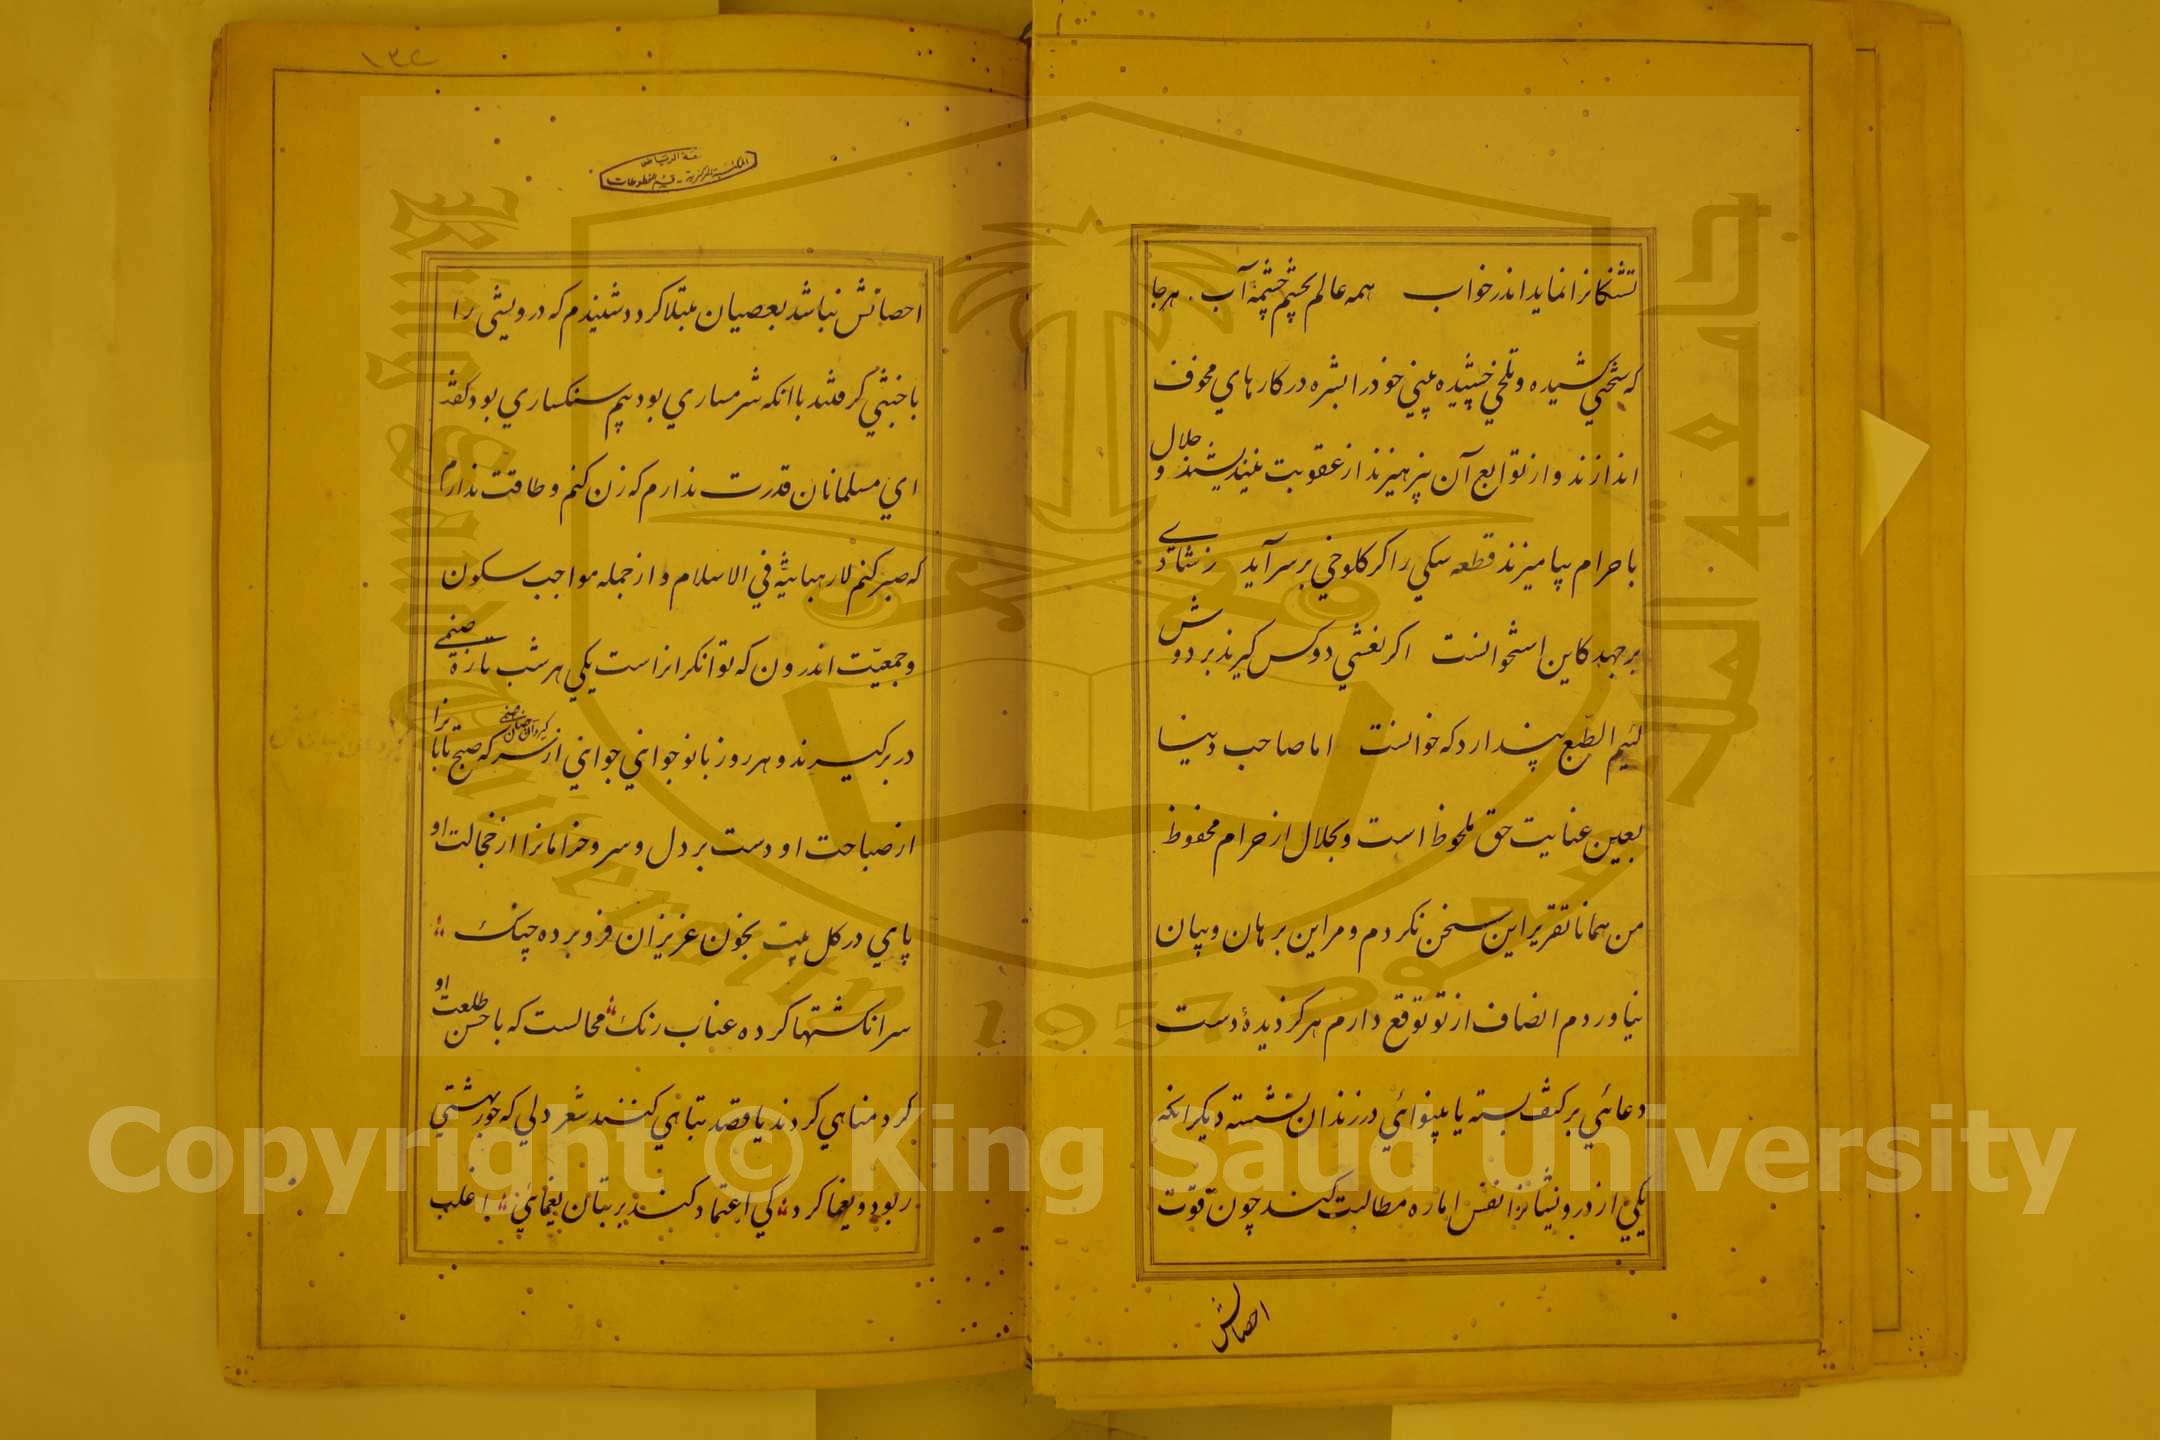 تشنکانرا نماید اندر خواب همه عالم بچشم چشمه آب . هر جا
که سختی کشیده و تلخی چشیده بینی خود را بشره در کارهای مخوف
اندازند و از توابع آن نپرهیزند از عقوبت نیندیشند و حلال
با حرام بیامیزند قطعه سکی را کر کلوخی بر سر آید ز شادی
بر جهد کاین استخوانست اکر نعشی دو کس کیرند بر دوش
لئیم الطبع پندارد که خوانست اما صاحب دنیا
بعین عنایت حق ملحوظ است و بحلال از حرام محفوظ
من همانا تقریر این سخن نکردم و مر این برهان و بیان
نیاوردم انصاف از تو توقع دارم هرکز دیدهٔ دست
دعائی بر کتف بسته یا بینوائی در زندان نشسته دیکر انکه
یکی از درویشانرا نفس اماره مطالبت کند چون قوت
احصانش
١٣٤
المکتبة المرکزیة - قسم المخطوطات
احصانش نباشد بعصیان مبتلا کردد شنیدم که درویشی را
با خبثی کرفتند با انکه شرمساری بود بیم سنکساری بود کفت
ای مسلمانان قدرت ندارم که زن کنم و طاقت ندارم
که صبر کنم لا رهبانیّة فی الاسلام و از جمله مواجب سکون
و جمعیّت اندرون که توانکرانراست یکی هر شب تازه صنمی
در بر کیرند و هر روز بانو جوانی جوانی از سر که صبح تابانرا
از صباحت او دست بر دل و سرو خرامانرا از خجالت او
پای در کل بیت بخون عزیزان فرو برده چنک
سر انکشتها کرده عناب رنک محالست که با حسن طلعت او
کرد مناهی کردند یا قصد تباهی کنند شعر دلی که حور بهشتی
ربود و یغما کرد کی اعتماد کند بر بتان یغمائی اغلب